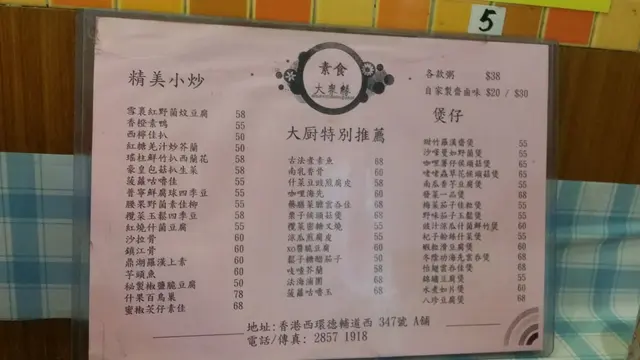 5
素食
大寨緣
精美小炒
雪裏紅野菌蚊豆腐 58
香橙素鴨 55
西檸佳扒 50
紅糖羌汁炒芥蘭 50
瑤柱鮮竹扒西蘭花 58
豪皇包菇扒生菜 58
菠蘿咕嚕佳 55
普寧鮮腐球四季豆 58
腰果野菌素佳柳 55
欖菜玉鬆四季豆 58
紅燒什菌豆腐 55
沙拉骨 60
鎮江骨 60
鼎湖羅漢上素 60
芋頭魚 60
秘製椒鹽脆豆腐 50
什果百鳥巢 78
蜜椒茭仔素佳 68
大厨特別推薦
古法煮素魚 68
南乳齋骨 60
什菜豆豉煎腐皮 58
咖喱海先 60
栗子猴頭菇煲 68
欖菜蜜糖叉燒 55
涼瓜煎腐皮 55
xo醬脆豆腐 60
鬆子糖醋茄子 50
吱喳芥蘭 58
法海蒲團 68
菠蘿咕嚕玉 68
各款粥 $38
自家製齋鹵味 $20 / $30
煲仔
甜竹羅漢齋煲 55
沙嗲曼如野菌煲 55
咖喱薯仔猴頭菇煲 65
啫啫蟲草花猴頭菇煲 65
南瓜香芋豆腐煲 55
發菜一品煲 68
梅菜茄子佳粒煲 55
野味茄子玉鬆煲 55
豉汁涼瓜什菌鮮竹煲 60
杞子粉絲什菜煲 55
蝦粒滑豆腐煲 60
冬陰功海先雲吞煲 68
怡麵雲吞佳煲 68
錦鏽豆腐煲 55
水煮如片煲 60
八珍豆腐煲 68
地址:香港西環德輔道西 347號 A舖
電話/傳真: 2857 1918